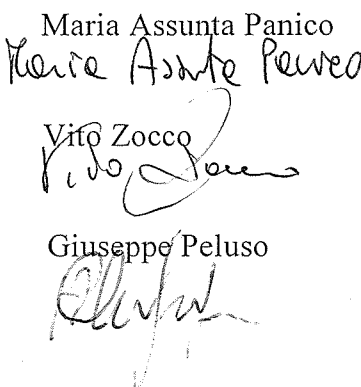 Maria Assunta Panico
Maria Assunta Panico
Vito Zocco
Vito Zocco
Giuseppe Peluso